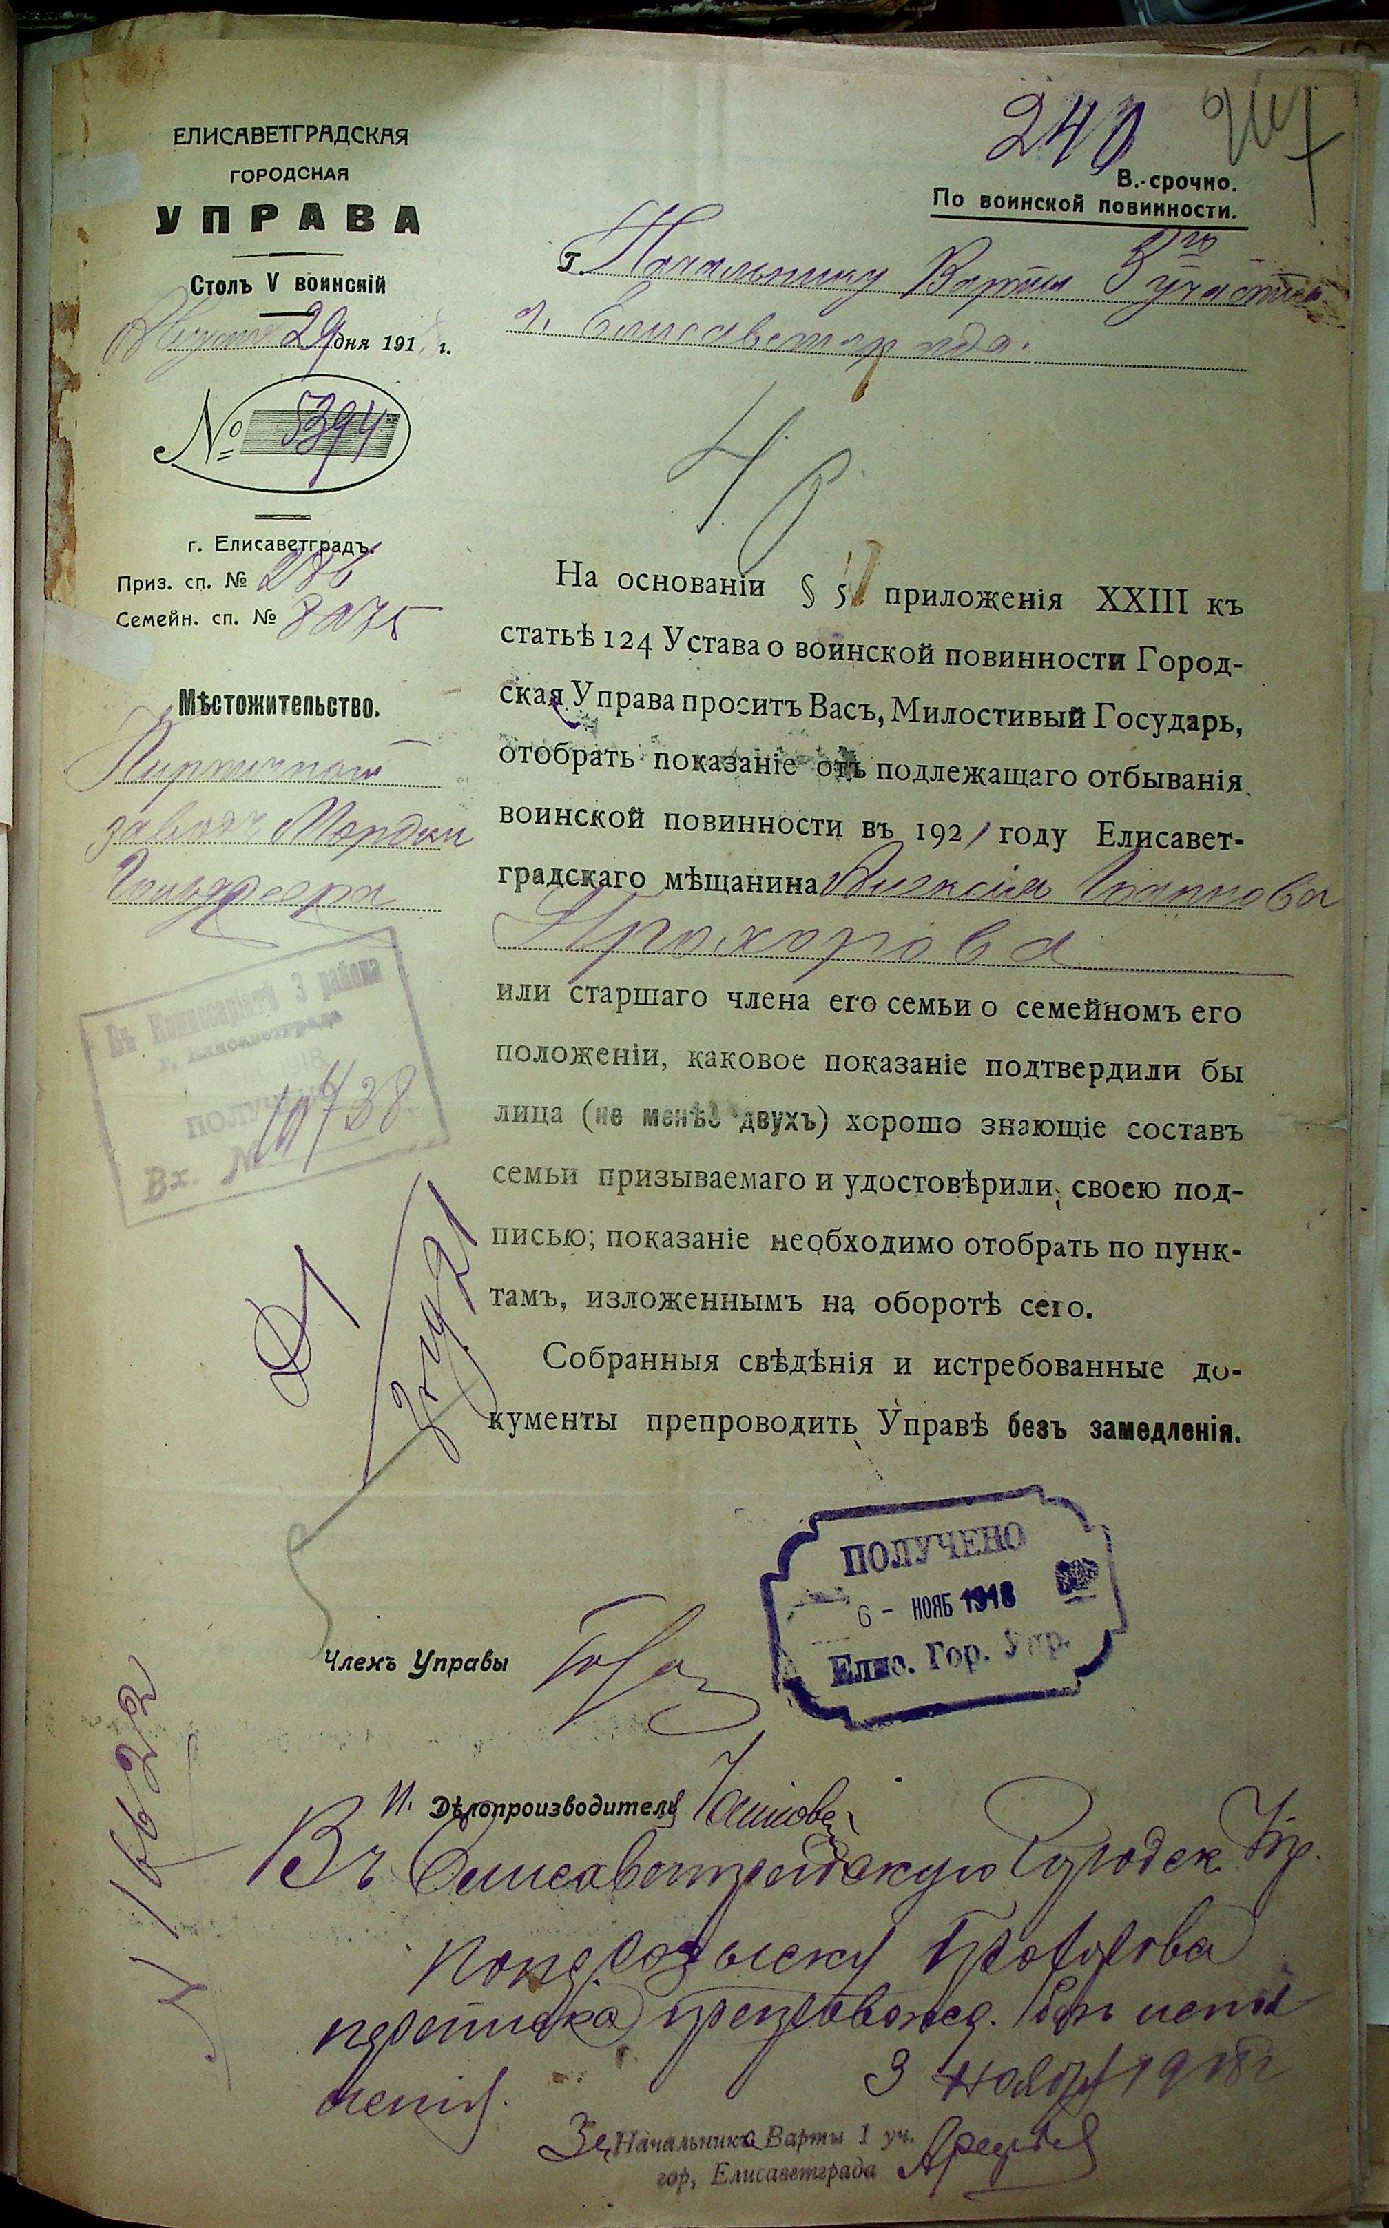 240
ЕЛИСАВЕТГРАДСКАЯ
ГОРОДСКАЯ
УПРАВА
Столъ V воинскій
Августа 29 дня 191 г.
№ 5394
г. Елисаветградъ.
Приз. сп. № 286
Семейн. сп. №
Мѣстожительство.
Кирпичный
заводъ
В.-срочно.
По воинской повинности.
Г. Начальнику Варты 3го участка
г. Елисаветграда.
На основаніи § 5 приложенія XXIII къ
статьѣ 124 Устава о воинской повинности Город-
ская Управа проситъ Васъ, Милостивый Государь,
отобрать показаніе отъ подлежащаго отбыванія
воинской повинности въ 1921 году Елисавет-
градскаго мѣщанина Алексѣя Иванова
Прохорова
или старшаго члена его семьи о семейномъ его
положеніи, каковое показаніе подтвердили бы
лица (не менѣе двухъ) хорошо знающіе составъ
семьи призываемаго и удостовѣрили своею под-
писью; показаніе необходимо отобрать по пунк-
тамъ, изложеннымъ на оборотѣ сего.
Собранныя свѣдѣнія и истребованные до-
кументы препроводить Управѣ безъ замедленія.
Въ Комисаріатѣ 3 района
г. Елисаветграда
1918
ПОЛУЧЕНО
Вх. № 10438
ПОЛУЧЕНО
6 - НОЯБ 1918
Елис. Гор. Упр.
Членъ Управы
И. Дѣлопроизводителя
№ 16622
Въ Елисаветградскую Городск. Упр.
по розыску Прохорова
переписка препровожд. безъ испол
ненія.
3 ноября 1918 г
За Начальника Варты 1 уч.
гор, Елисаветграда